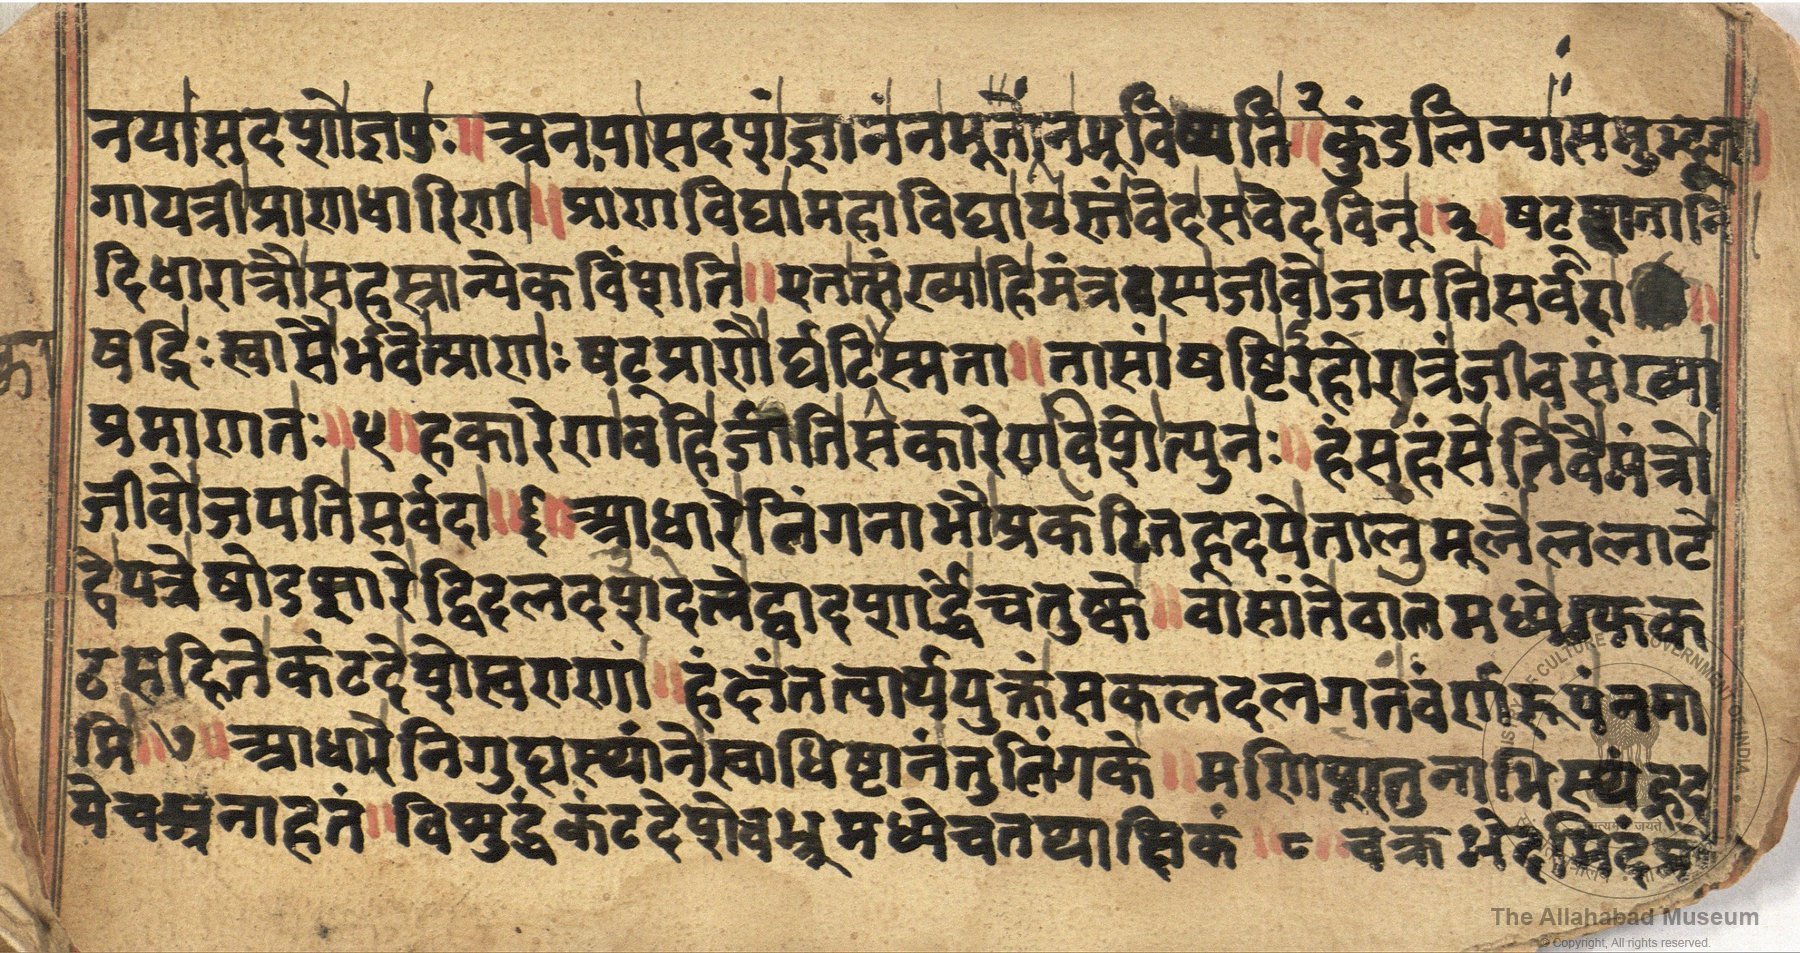 नया सदृशो जपुः ॥ अनया सदृशं ज्ञानं न भूतो न भविष्यति ॥ २ कुंडलिन्यां समुद्भूता
गायत्री प्राणधारिणी ॥ प्राणविद्या महाविद्या यस्तं वेद स वेदवित् ॥ ३ ॥ षट् शतानि
दिवारात्रौ सहस्रान्येकविंशति ॥ एतत्संख्याहि मंत्रस्य जीवो जपति सर्वदा ॥
षड्भिः स्वासैर्भवेत्प्राणः षट्प्राणैर्घटि स्मृता ॥ तासां षष्टिरहोरात्रं जीवसंख्या
प्रमाणतः ॥ ५ ॥ हकारेण वहिर्जाति सकारेण विशेत्पुनः ॥ हंसहंसेति वै मंत्रो
जीवो जपति सर्वदा ॥ ६ ॥ आधारे लिंगनाभौ प्रकटित हृदये तालुमूले ललाटे
द्वे पत्रे षोडशारे द्विदलदशदले द्वादशार्द्धे चतुष्के ॥ वासांते वालमध्ये डफक
ठ सहिते कंठदेशे स्वराणां ॥ हं क्षं तत्वार्थयुक्तं सकलदलगतं वर्णरूपं नमा
मि ॥ ७ ॥ आधारे नि गुद्यस्थाने स्वाधिष्टानं तु लिंगके ॥ मणिपूरं तु नाभिस्थं हृद
ये च अनाहतं ॥ विशुद्धं कंठदेशे च भ्रूमध्ये च तथाज्ञिकं ॥ ८ ॥ चक्रभेदमिदं
The Allahabad Museum
© Copyright, All rights reserved.